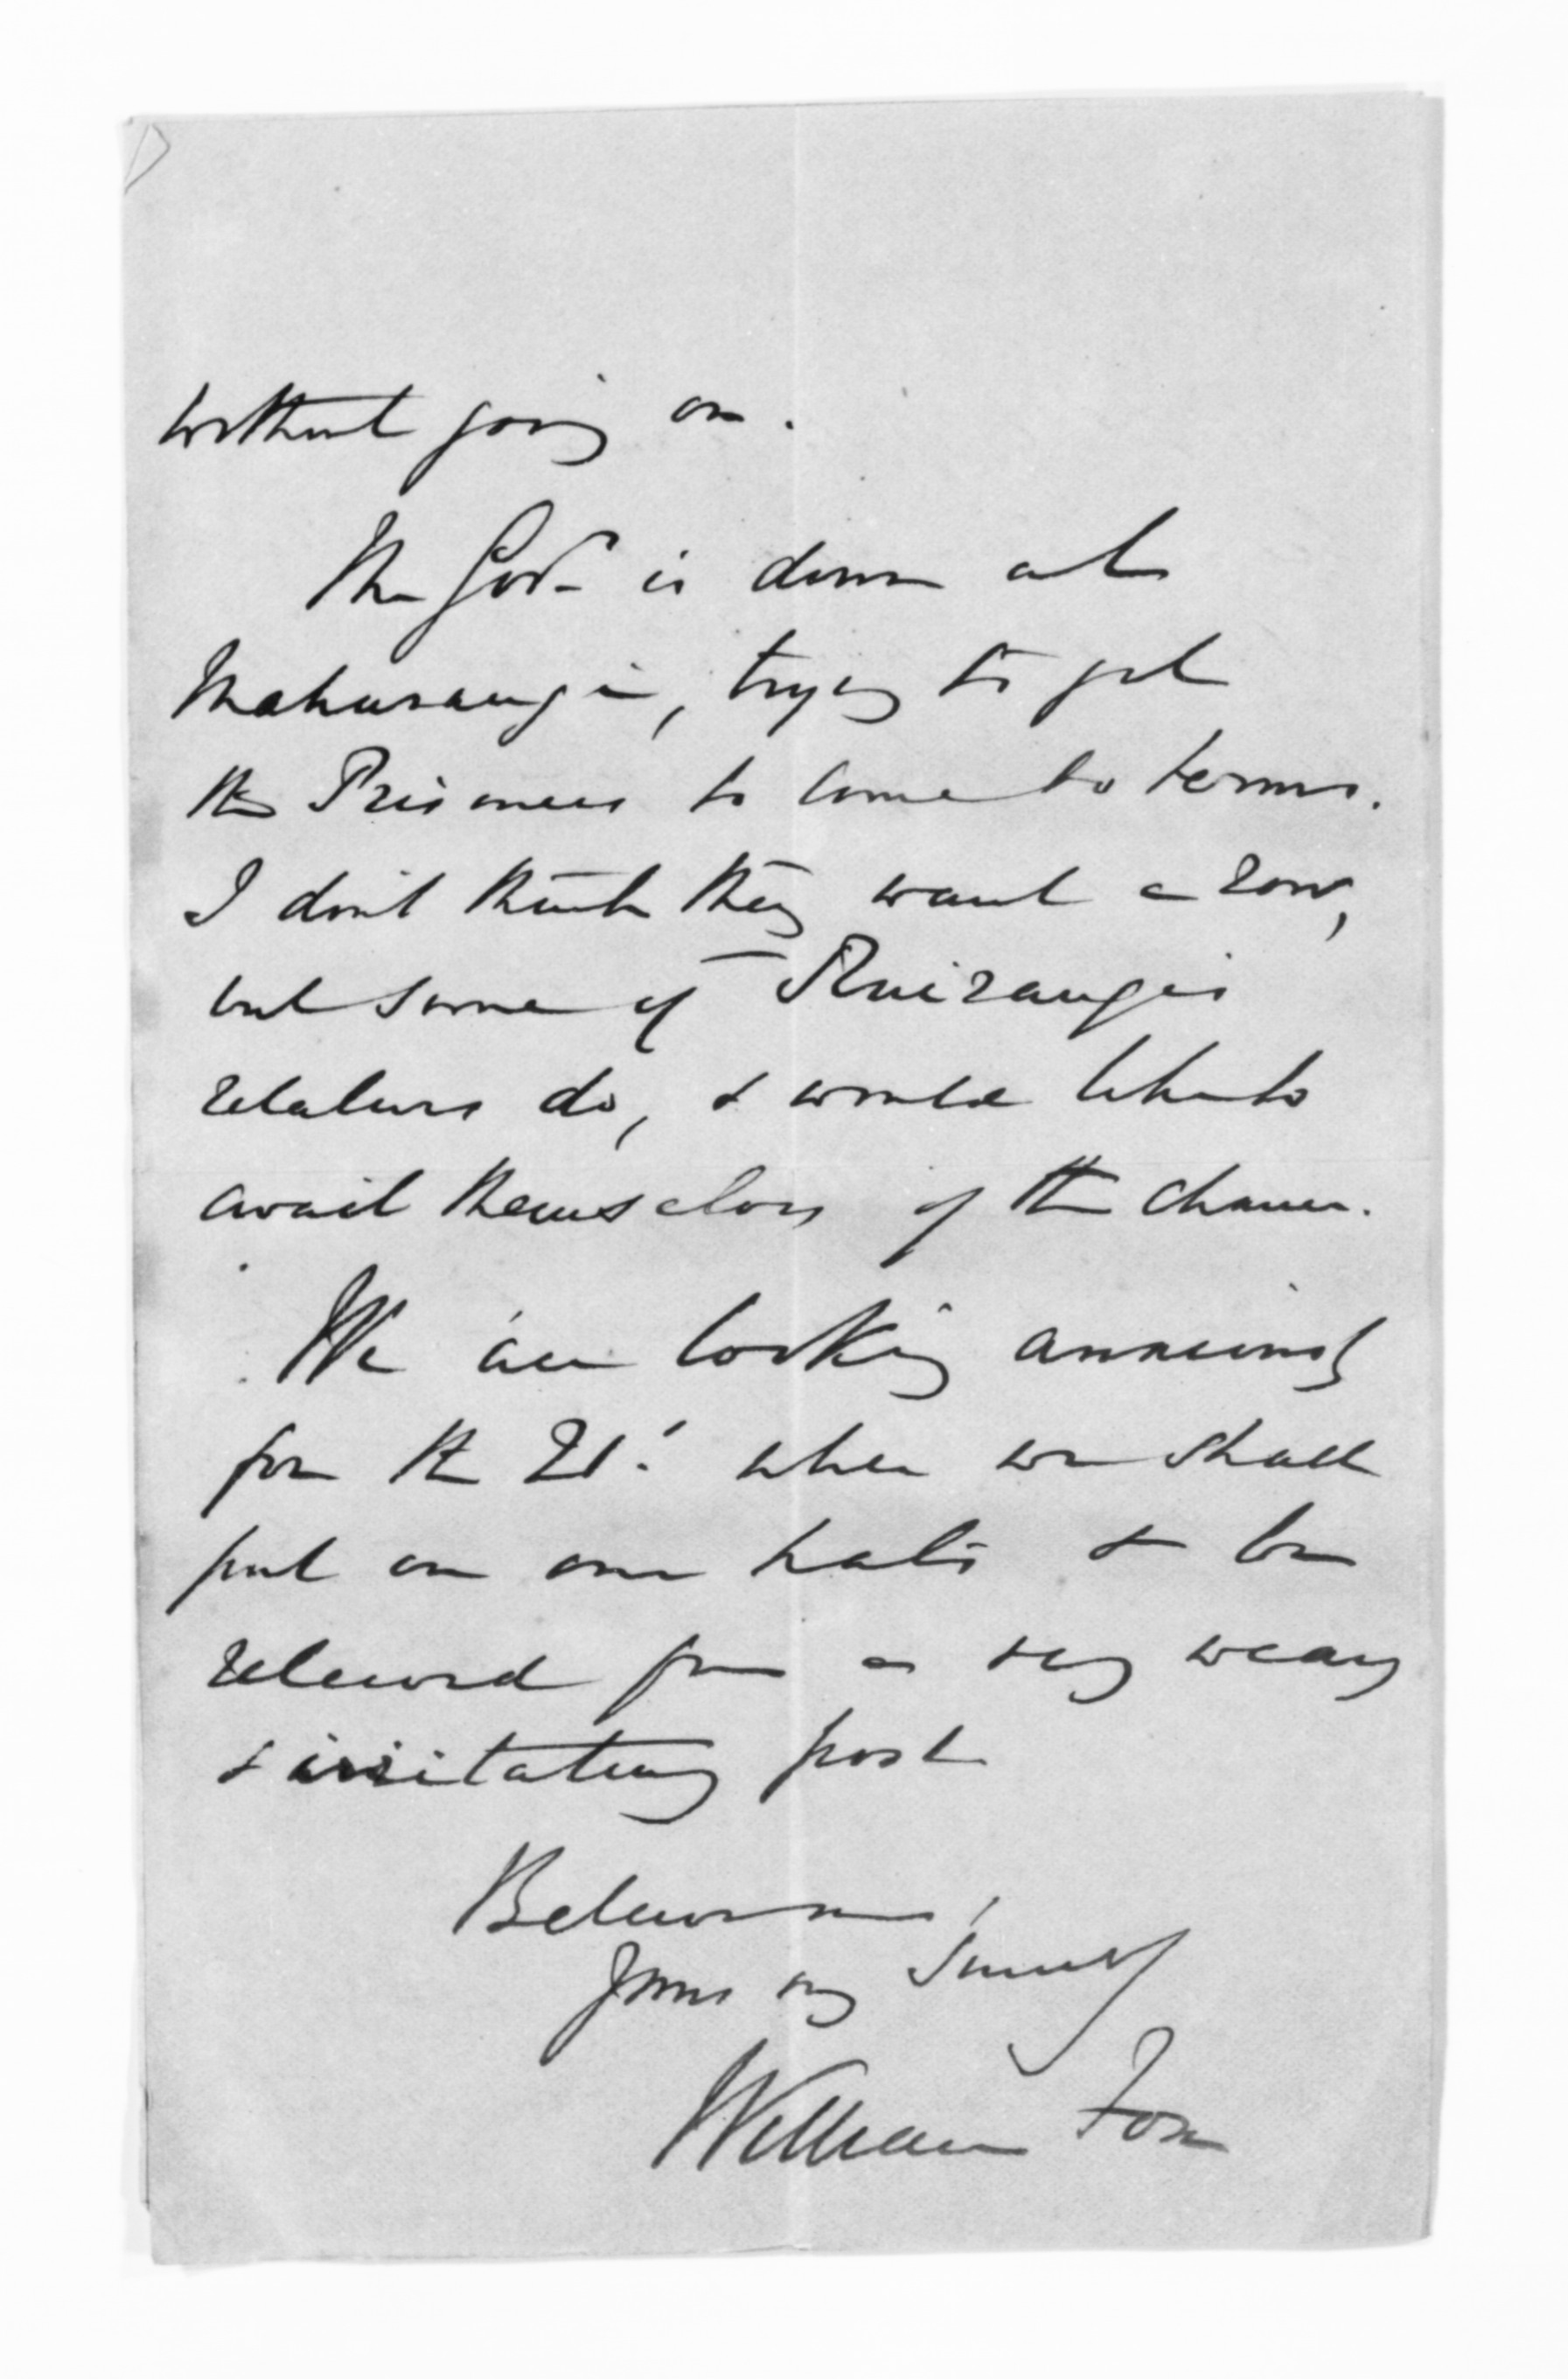 without going on.
The Govr is down at
Mahurangi, trying to get
the Prisoners to come to terms.
I don't think they want a row,
but some of Ruirangi's
relatives do, & would like to
avail themselves of the chance.
We are looking anxiously
for the 21st when we shall
put on our hats & be
relieved from a very weary
& irritating post
Believe me,
Yours very sincerely
William Fox